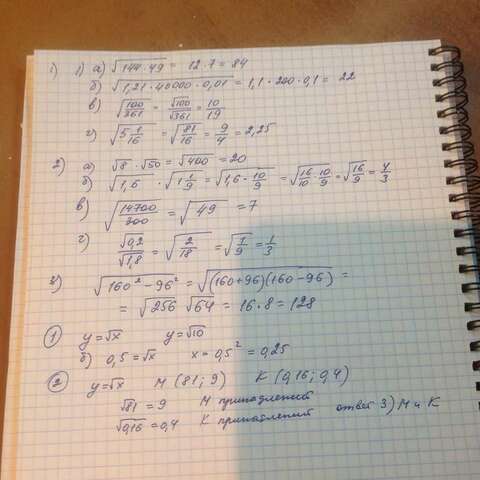 1) 1) а) √144·49 = 12·7 = 84
б) √1,21·40000·0,01 = 1,1·200·0,1 = 22
в) √100/361 = √100/√361 = 10/19
г) √5 1/16 = √81/16 = 9/4 = 2,25
2) а) √8·√50 = √400 = 20
б) √1,6 · √1 1/9 = √1,6·10/9 = √16/10·10/9 = √16/9 = 4/3
в) √14700/300 = √49 = 7
г) √0,2/√1,8 = √2/18 = √1/9 = 1/3
3) √160²-96² = √(160+96)(160-96) =
= √256 √64 = 16·8 = 128
1 y=√x y=√10
б) 0,5=√x x=0,5²=0,25
2 y=√x M (81; 9) K (0,16; 0,4)
√81 = 9 M принадлежит
√0,16 = 0,4 K принадлежит ответ 3) M и K